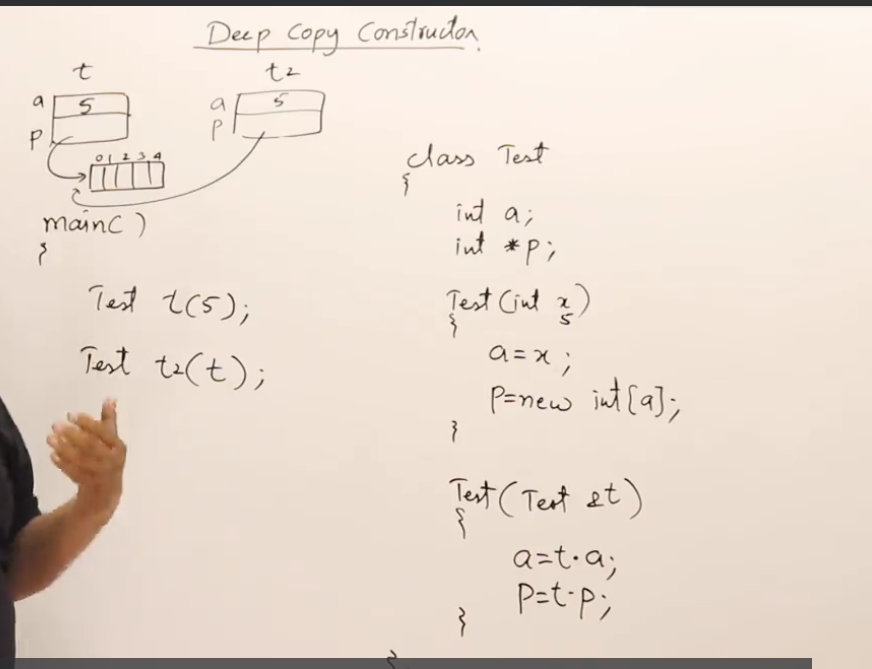 Deep Copy Constructor
t
t2
a 5
p
0 1 2 3 4
a 5
p
main( )
{
Test t(5);
Test t2(t);
class Test
{
int a;
int *p;
Test(int x)
5
{
a=x;
p=new int[a];
}
Test(Test &t)
{
a=t.a;
p=t.p;
}
}